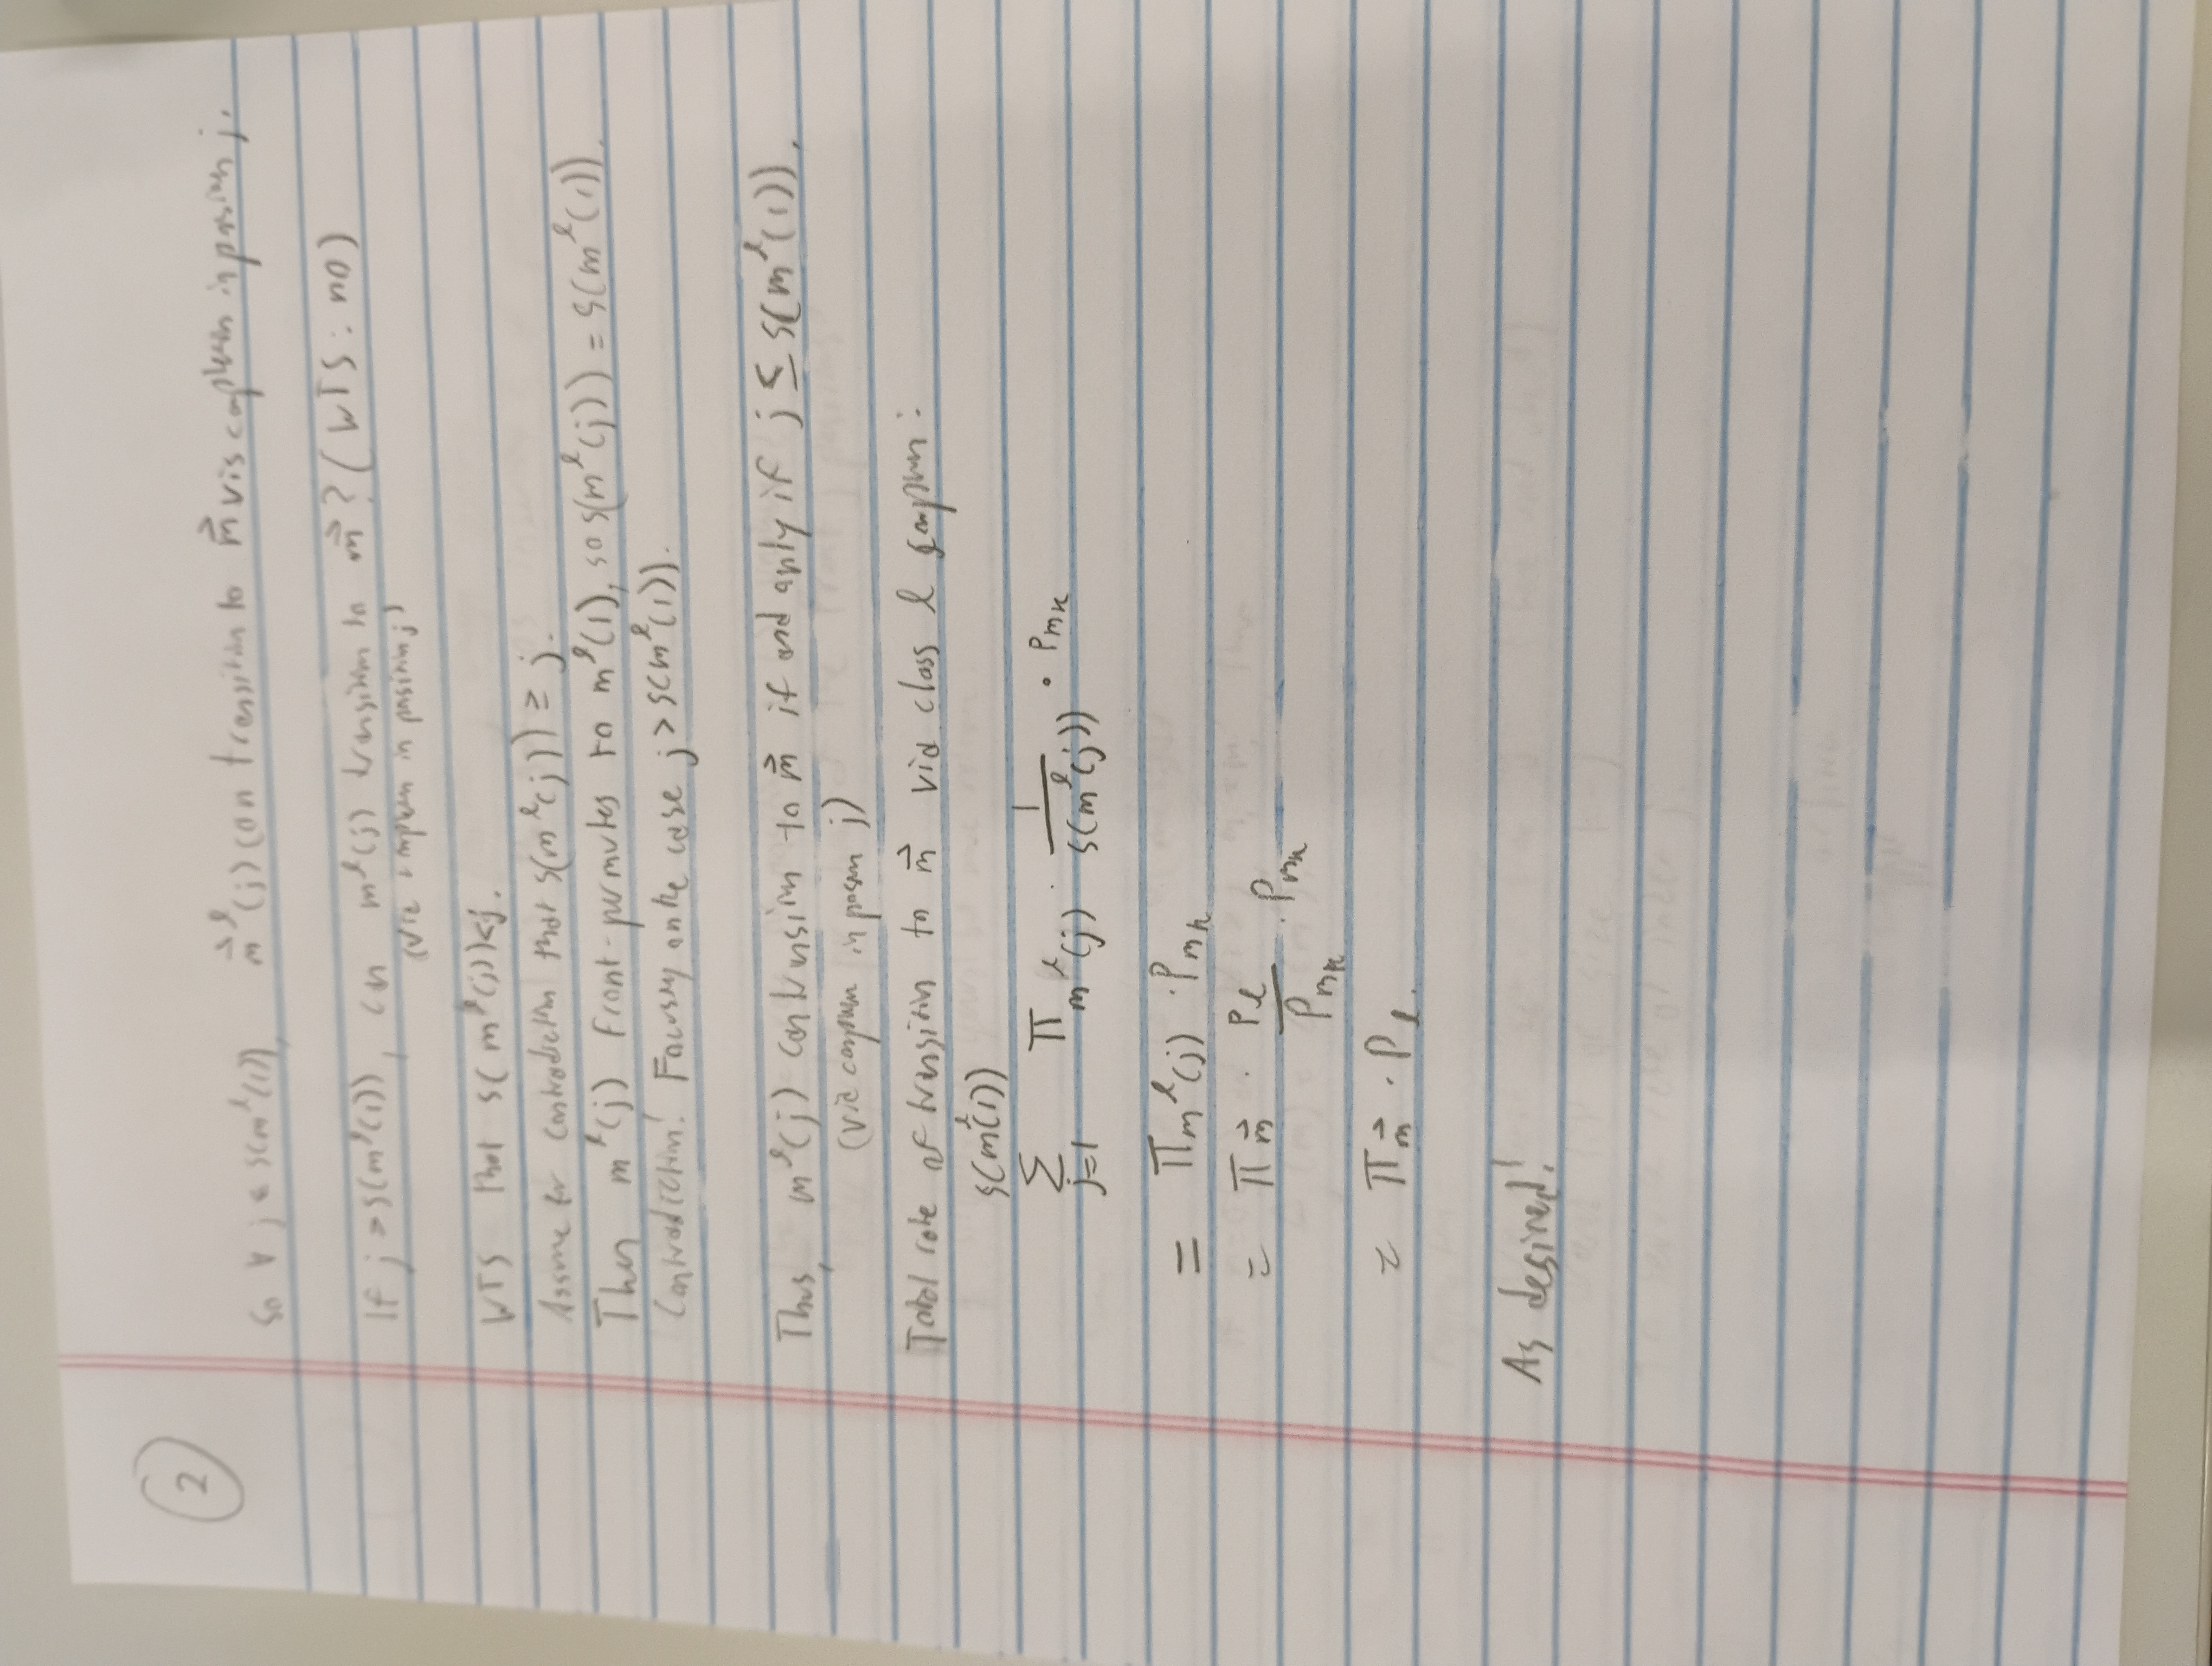 2
So ∀ j ≤ s(m^l(1)), m⃗^l(j) can transition to m⃗ via completion in position j.
If j > s(m^l(1)), can m^l(j) transition to m⃗? (WTS: no)
(via completion in position j)
WTS that s(m^l(j)) < j.
Assume for contradiction that s(m^l(j)) ≥ j.
Then m^l(j) front-permutes to m^l(1), so s(m^l(j)) = s(m^l(1)).
Contradiction! Focusing on the case j > s(m^l(1)).
Thus, m^l(j) can transition to m⃗ if and only if j ≤ s(m^l(1)).
(via completion in position j)
Total rate of transition to m⃗ via class l completion:
∑_{j=1}^{s(m^l(1))} π_{m^l(j)} · 1/s(m^l(j)) · p_{m_k}
= π_{m^l(j)} · p_{m_k}
= π_{m⃗} · p_l/p_{m_k} · p_{m_k}
= π_{m⃗} · p_l.
As desired!